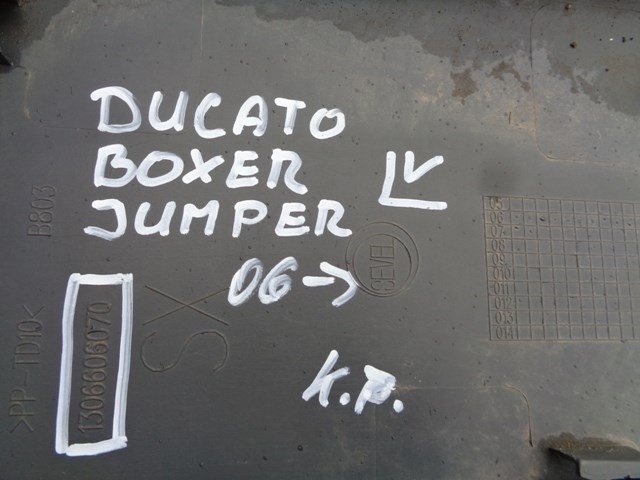 DUCATO
BOXER
JUMPER
LV
06->
K.P.
B803
>PP-TD10<
1306606070
SX
SEVEL
05
06
07
08
09
010
011
012
013
014